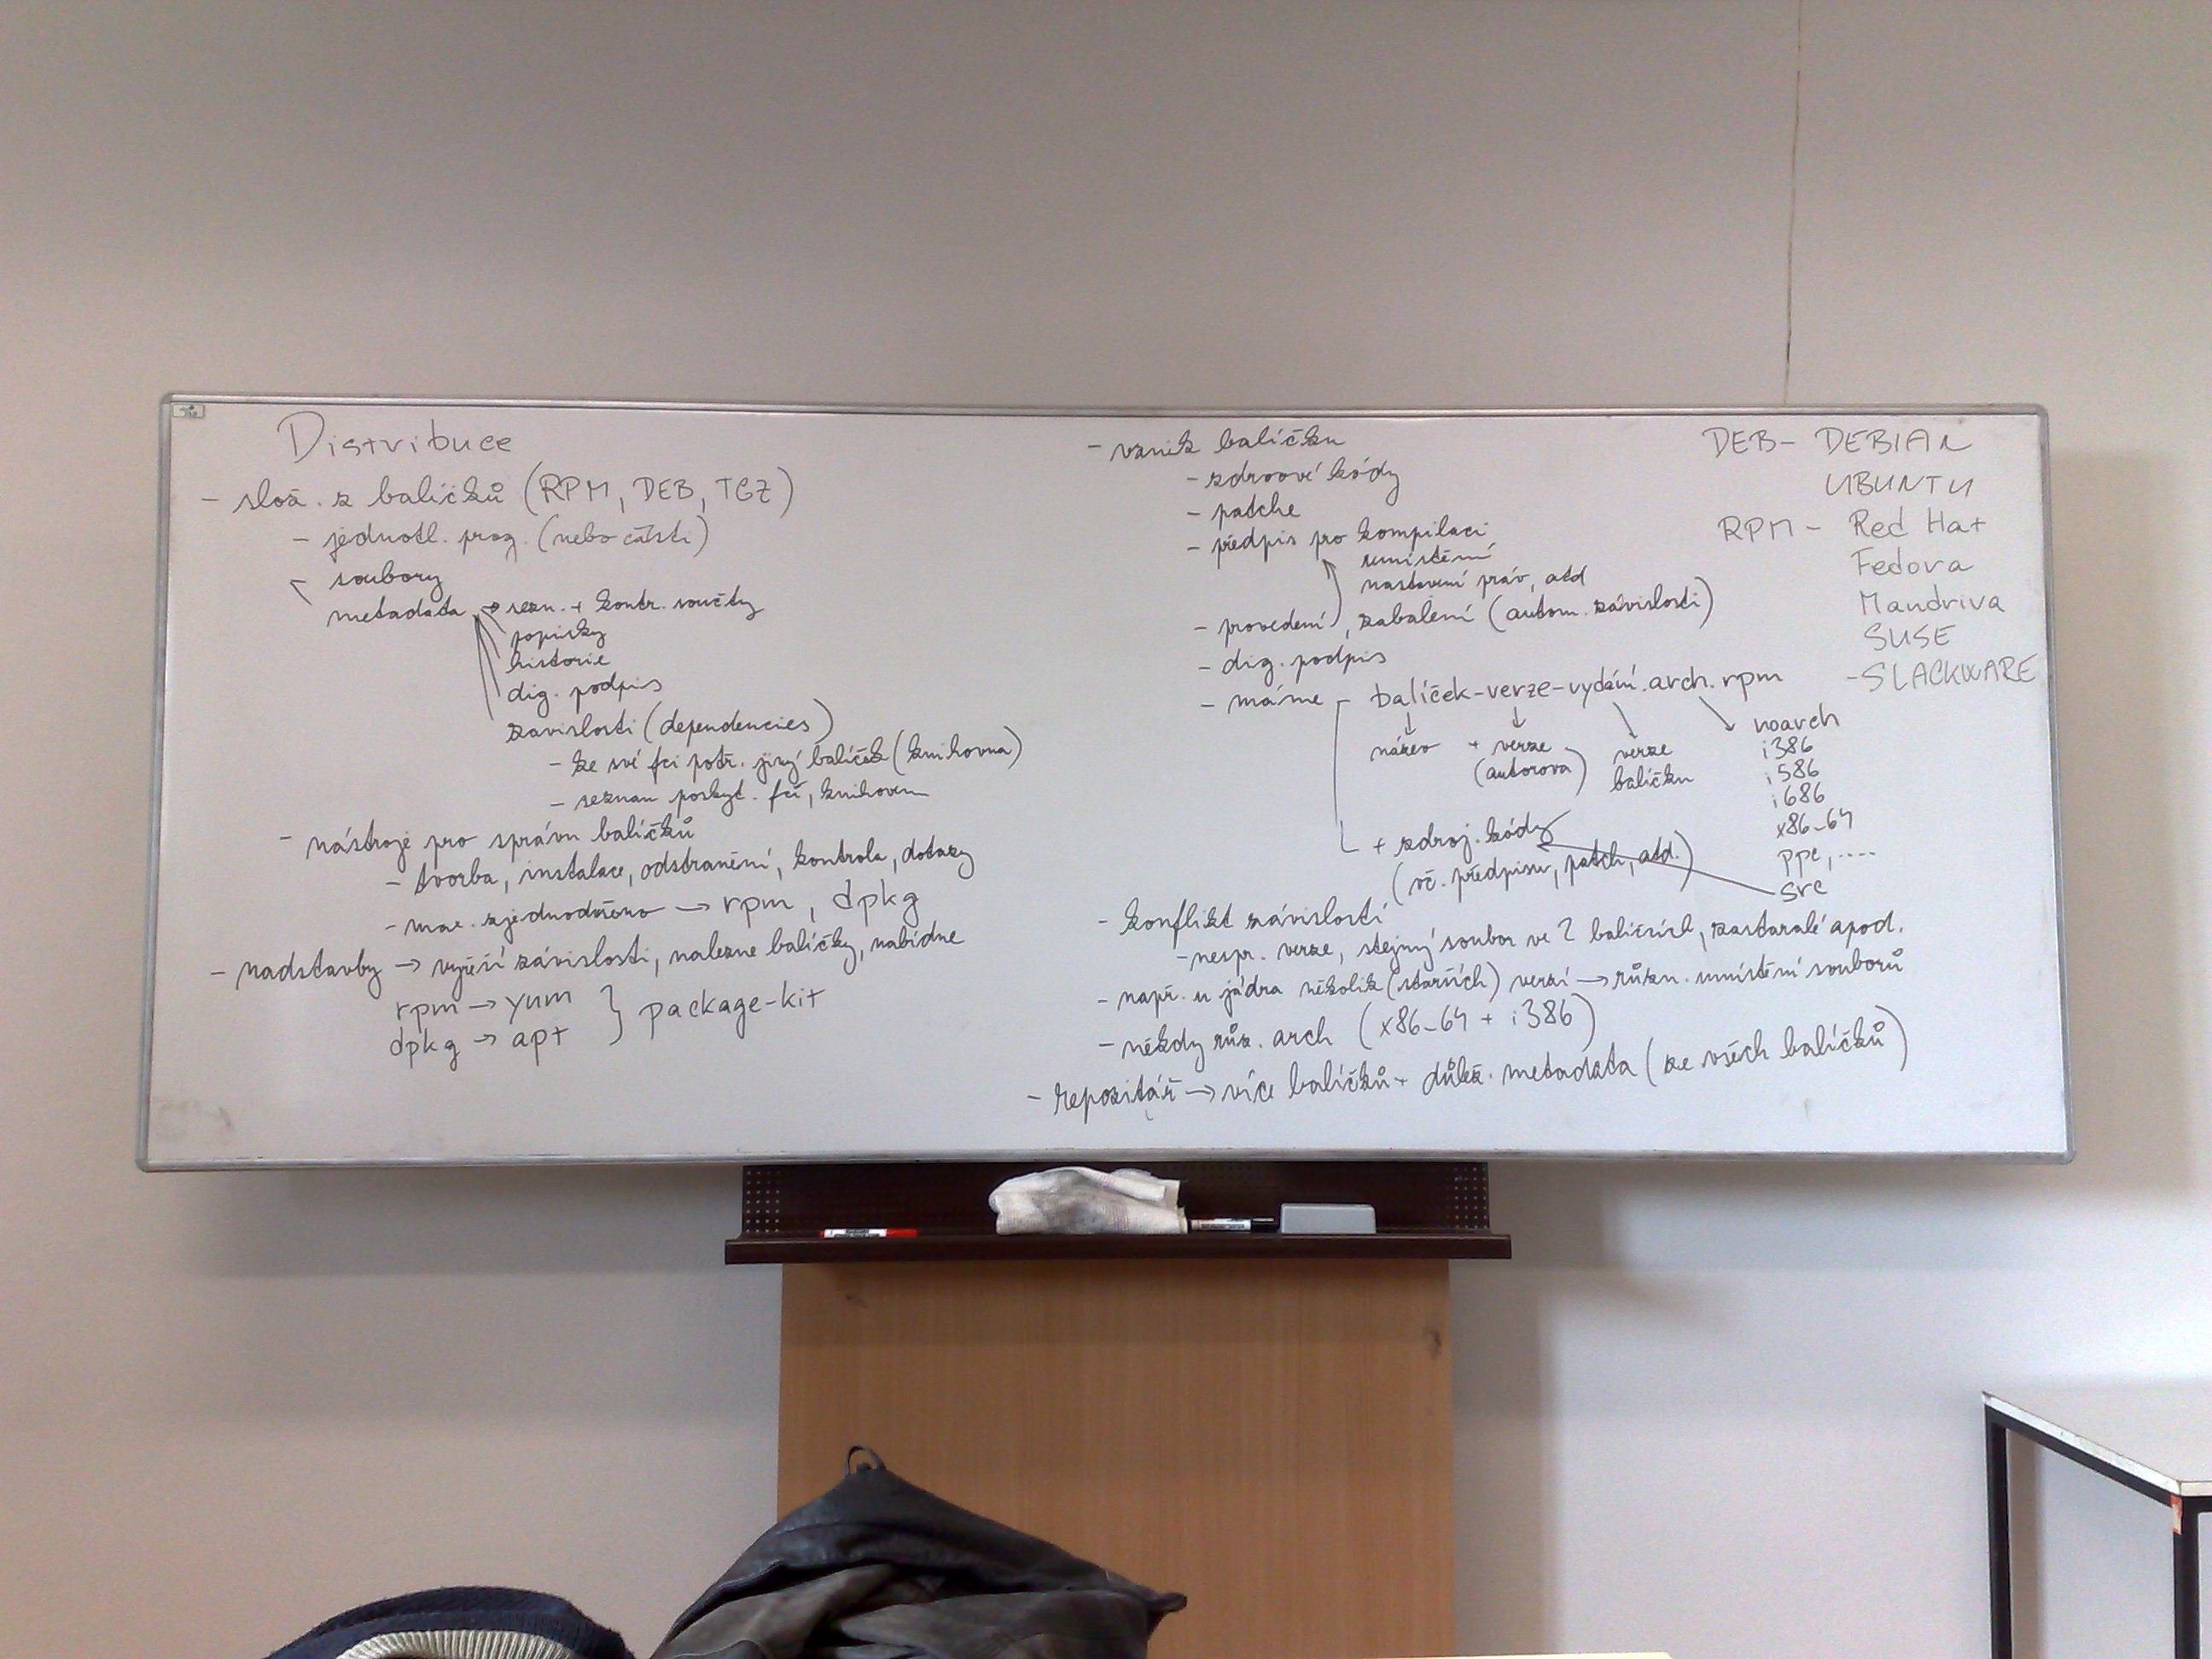 Distribuce
- slož. z balíčků (RPM, DEB, TGZ)
- jednotl. prog. (nebo části)
- soubory
metadata → sezn. + kontr. součty
popisky
historie
dig. podpis
závislosti (dependencies)
- ke své fci potř. jiný balíček (knihovna)
- seznam poskyt. fcí, knihoven
- nástroje pro správu balíčků
- tvorba, instalace, odstranění, kontrola, dotazy
- max. zjednodušeno → rpm, dpkg
- nadstavby → vyřeší závislosti, nalezne balíčky, nabídne
rpm → yum } package-kit
dpkg → apt
- vznik balíčku
- zdrojové kódy
- patche
- předpis pro kompilaci
umístění
nastavení práv, atd
- provedení, zabalení (autom. závislosti)
- dig. podpis
- máme - balíček-verze-vydání.arch.rpm
název + verze (autorova)
verze balíčku
noarch
i386
i586
i686
x86_64
ppc, ....
src
+ zdroj. kódy
(vč. předpisu, patch, atd.)
- konflikt závislostí
- nespr. verze, stejný soubor ve 2 balíčcích, zastaralé apod.
- např. u jádra několik (starších) verzí → různ. umístění souborů
- někdy růz. arch (x86_64 + i386)
- repozitář → více balíčků + důlež. metadata (ze všech balíčků)
DEB - DEBIAN
UBUNTU
RPM - Red Hat
Fedora
Mandriva
SUSE
- SLACKWARE